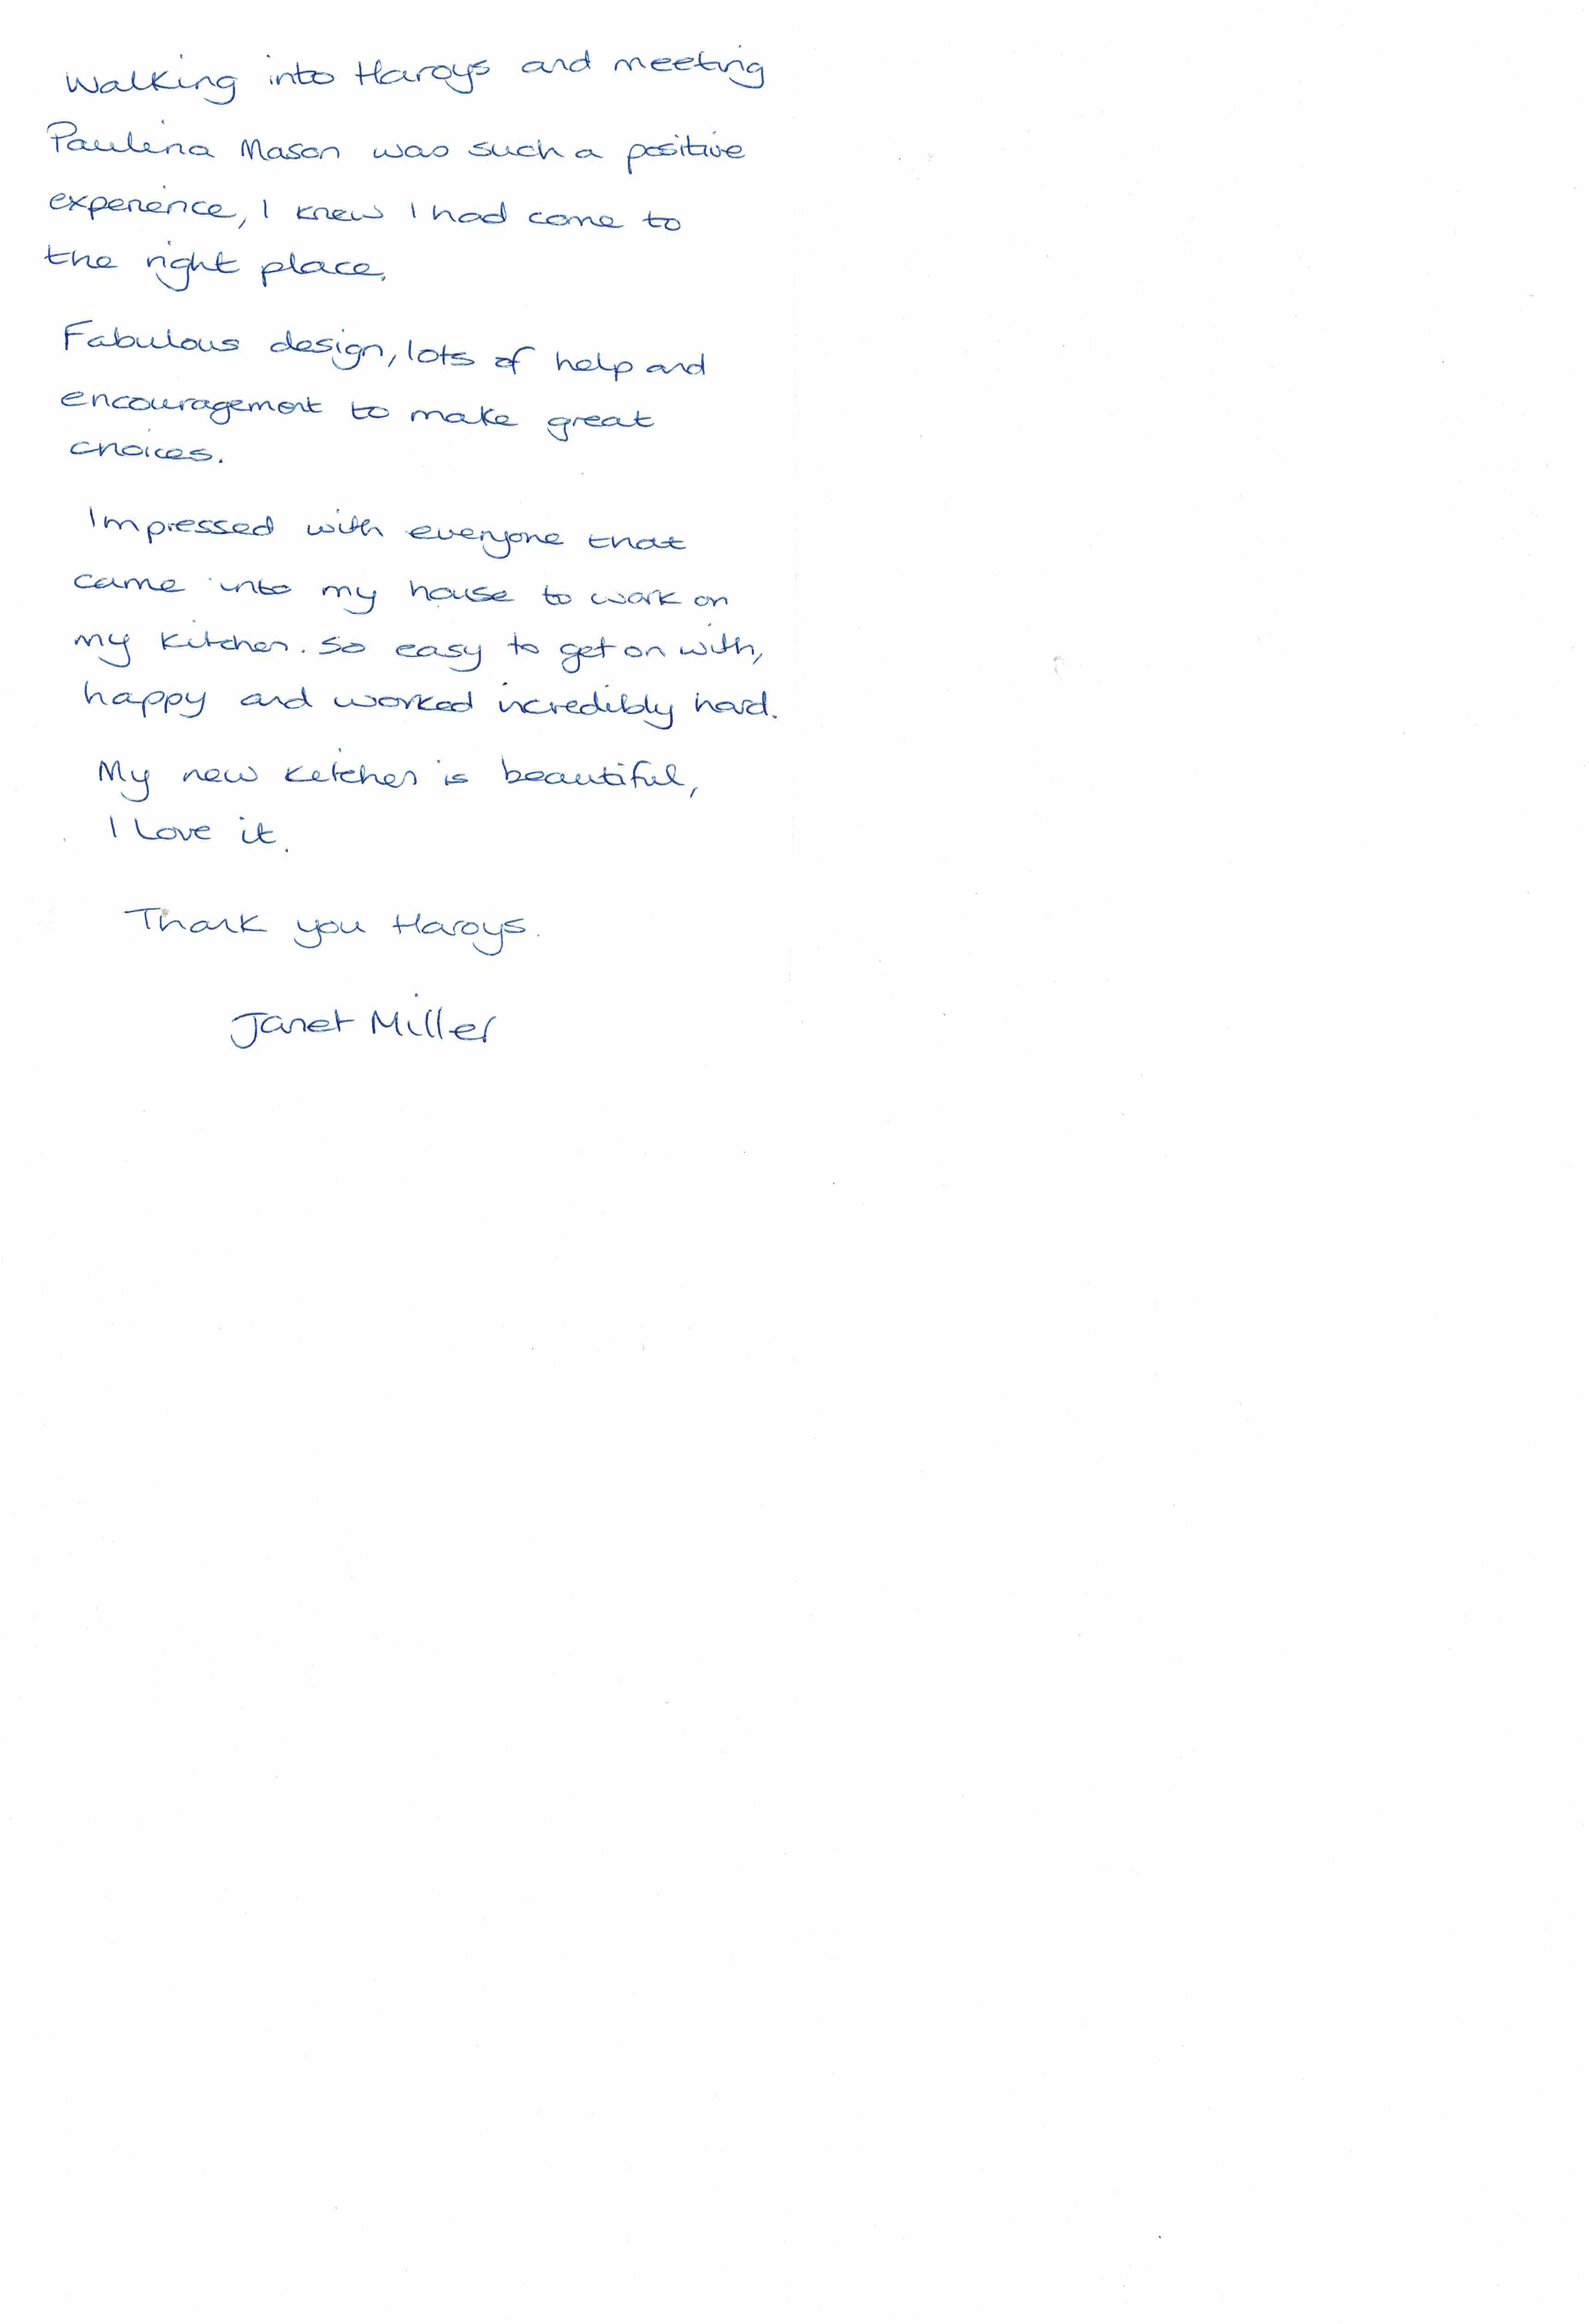 Walking into Haroys and meeting
Paulina Mason was such a positive
experience, I knew I had come to
the right place.
Fabulous design, lots of help and
encouragement to make great
choices.
Impressed with everyone that
came into my house to work on
my kitchen. So easy to get on with,
happy and worked incredibly hard.
My new kitchen is beautiful,
I love it.
Thank you Haroys.
Janet Miller